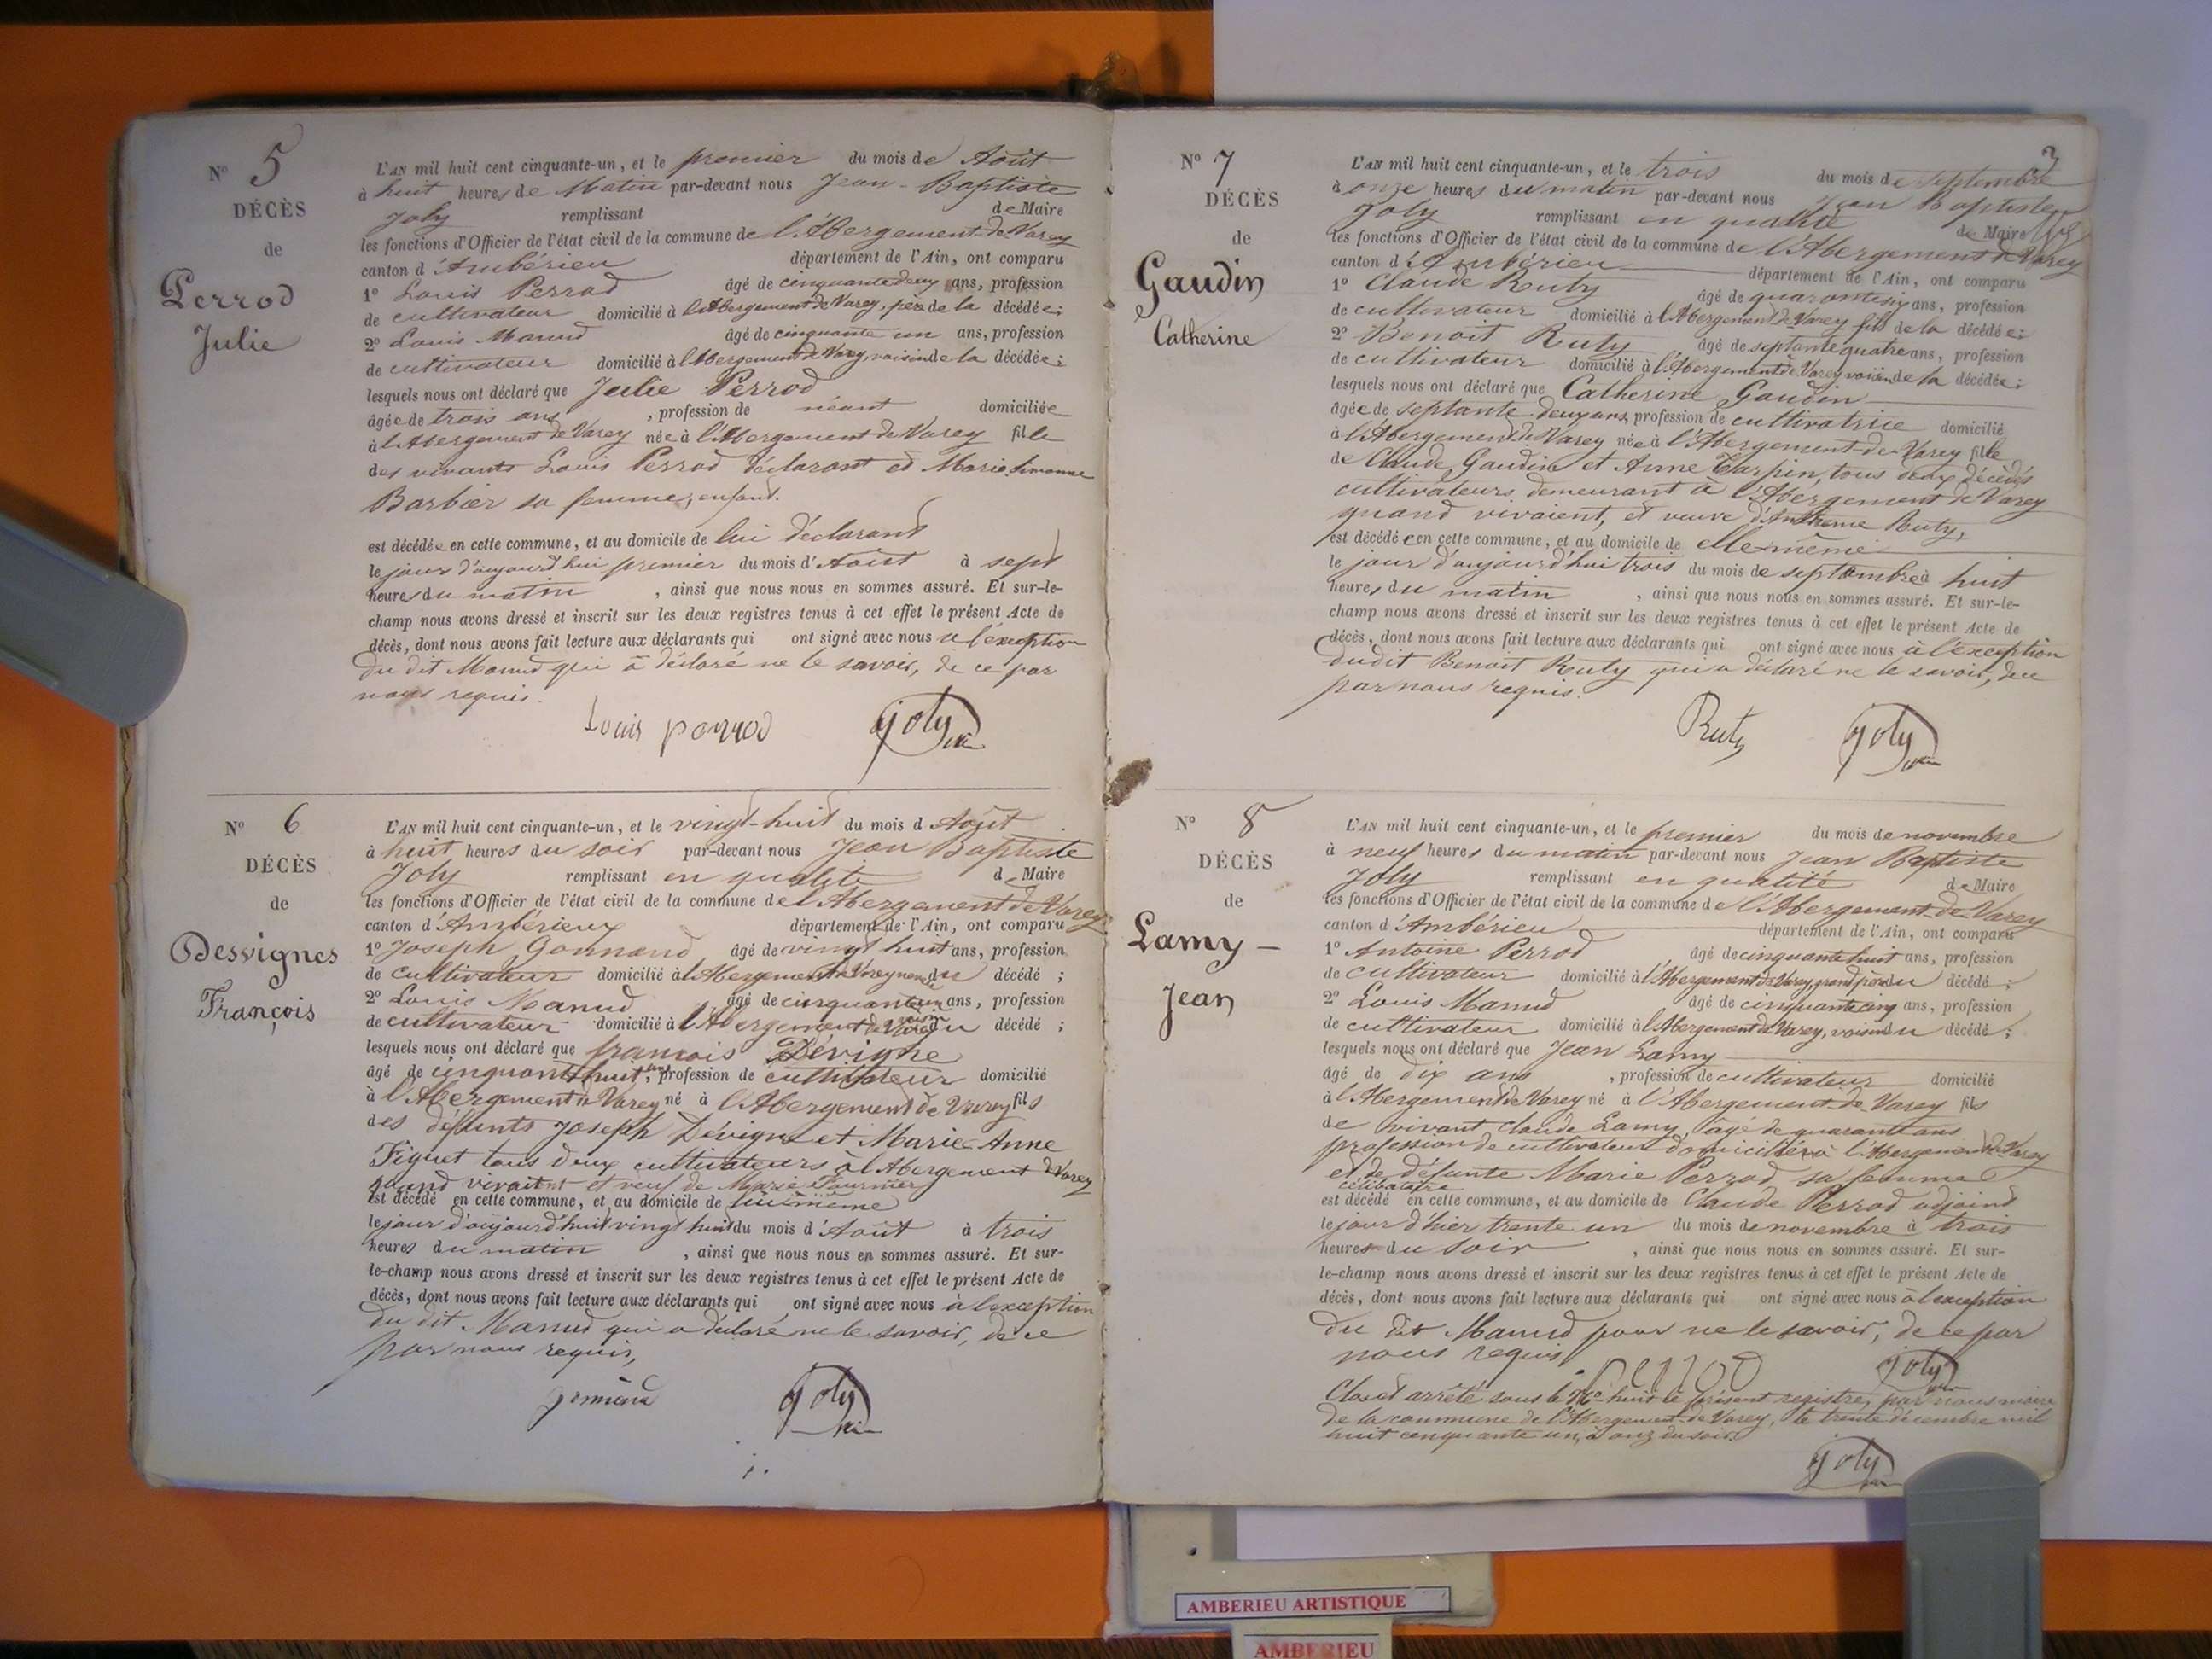 N° 5
DÉCÈS
de
Perrod
Julie
L'AN mil huit cent cinquante-un, et le premier du mois de Août
à huit heures de Matin par-devant nous Jean-Baptiste
Joly remplissant de Maire
les fonctions d'Officier de l'état civil de la commune de l'Abergement-de-Varey
canton d'Ambérieu département de l'Ain, ont comparu
1° Louis Perrod âgé de cinquante deux ans, profession
de cultivateur domicilié à l'Abergement de Varey, père de la décédée;
2° Louis Manud âgé de cinquante un ans, profession
de cultivateur domicilié à l'Abergement de Varey, voisin de la décédée;
lesquels nous ont déclaré que Julie Perrod
âgée de trois ans, profession de néant domiciliée
à l'Abergement de Varey née à l'Abergement de Varey fille
des vivants Louis Perrod déclarant et Marie Simonne
Barbier sa femme, enfant.
est décédée en cette commune, et au domicile de lui déclarant
le jour d'aujourd'hui premier du mois d'Août à sept
heures du matin, ainsi que nous nous en sommes assuré. Et sur-le-
champ nous avons dressé et inscrit sur les deux registres tenus à cet effet le présent Acte de
décès, dont nous avons fait lecture aux déclarants qui ont signé avec nous à l'exception
du dit Manud qui a déclaré ne le savoir, de ce par
nous requis.
Louis perrod Joly
N° 6
DÉCÈS
de
Dessignes
François
L'AN mil huit cent cinquante-un, et le vingt-huit du mois d Août
à huit heures du soir par-devant nous Jean Baptiste
Joly remplissant en qualité de Maire
les fonctions d'Officier de l'état civil de la commune de l'Abergement de Varey
canton d'Ambérieux département de l'Ain, ont comparu
1° Joseph Gonnand âgé de vingt huit ans, profession
de cultivateur domicilié à l'Abergement de Varey du décédé;
2° Louis Manud âgé de cinquante un ans, profession
de cultivateur domicilié à l'Abergement de Varey voisin du décédé;
lesquels nous ont déclaré que francois Dévigne
âgé de cinquante huit ans, profession de cultivateur domicilié
à l'Abergement de Varey né à l'Abergement de Varey fils
des défunts Joseph Dévigne et Marie-Anne
Figuet tous deux cultivateurs à l'Abergement de Varey
quand vivaient et veuf de Marie Fournier
est décédé en cette commune, et au domicile de lui même
le jour d'aujourd'hui vingt huit du mois d'Août à trois
heures du matin, ainsi que nous nous en sommes assuré. Et sur-
le-champ nous avons dressé et inscrit sur les deux registres tenus à cet effet le présent Acte de
décès, dont nous avons fait lecture aux déclarants qui ont signé avec nous à l'exception
du dit Manud qui a déclaré ne le savoir, de ce
par nous requis,
Joly
3
N° 7
DÉCÈS
de
Gaudin
Catherine
L'AN mil huit cent cinquante-un, et le trois du mois de septembre
à onze heures du matin par-devant nous Jean Baptiste
Joly remplissant en qualité de Maire
les fonctions d'Officier de l'état civil de la commune de l'Abergement de Varey
canton d'Ambérieu département de l'Ain, ont comparu
1° Claude Ruty âgé de quarante six ans, profession
de cultivateur domicilié à l'Abergement de Varey fils de la décédée;
2° Benoit Ruty âgé de septante quatre ans, profession
de cultivateur domicilié à l'Abergement de Varey voisin de la décédée;
lesquels nous ont déclaré que Catherine Gaudin
âgée de septante deux ans, profession de cultivatrice domicilié
à l'Abergement de Varey née à l'Abergement de Varey fille
de Claude Gaudin et Anne Carpin, tous deux décédés
cultivateurs demeurant à l'Abergement de Varey
quand vivaient, et veuve d'Antheme Ruty,
est décédée en cette commune, et au domicile de elle même
le jour d'aujourd'hui trois du mois de septembre à huit
heures du matin, ainsi que nous nous en sommes assuré. Et sur-le-
champ nous avons dressé et inscrit sur les deux registres tenus à cet effet le présent Acte de
décès, dont nous avons fait lecture aux déclarants qui ont signé avec nous à l'exception
dudit Benoit Ruty qui a déclaré ne le savoir, de ce
par nous requis.
Ruty Joly
N° 8
DÉCÈS
de
Lamy
Jean
L'AN mil huit cent cinquante-un, et le premier du mois de novembre
à neuf heures du matin par-devant nous Jean Baptiste
Joly remplissant en qualité de Maire
les fonctions d'Officier de l'état civil de la commune de l'Abergement-de-Varey
canton d'Ambérieu département de l'Ain, ont comparu
1° Antoine Perrod âgé de cinquante huit ans, profession
de cultivateur domicilié à l'Abergement de Varey, grand père du décédé;
2° Louis Manud âgé de cinquante cinq ans, profession
de cultivateur domicilié à l'Abergement de Varey, voisin du décédé;
lesquels nous ont déclaré que Jean Lamy
âgé de dix ans, profession de cultivateur domicilié
à l'Abergement de Varey né à l'Abergement de Varey fils
de vivant Claude Lamy, âgé de quarante ans
profession de cultivateur domicilié à l'Abergement de Varey
et de défunte Marie Perrod sa femme
célibataire
est décédé en cette commune, et au domicile de Claude Perrod adjoint
le jour d'hier trente un du mois de novembre à trois
heures du soir, ainsi que nous nous en sommes assuré. Et sur-
le-champ nous avons dressé et inscrit sur les deux registres tenus à cet effet le présent Acte de
décès, dont nous avons fait lecture aux déclarants qui ont signé avec nous à l'exception
du dit Manud pour ne le savoir, de ce par
nous requis
Perrod Joly
Clos et arrêté sous le N° huit le présent registre, par nous maire
de la commune de l'Abergement-de-Varey, le trente décembre mil
huit cinquante un, à onz du soir.
Joly
AMBERIEU ARTISTIQUE
AMBERIEU